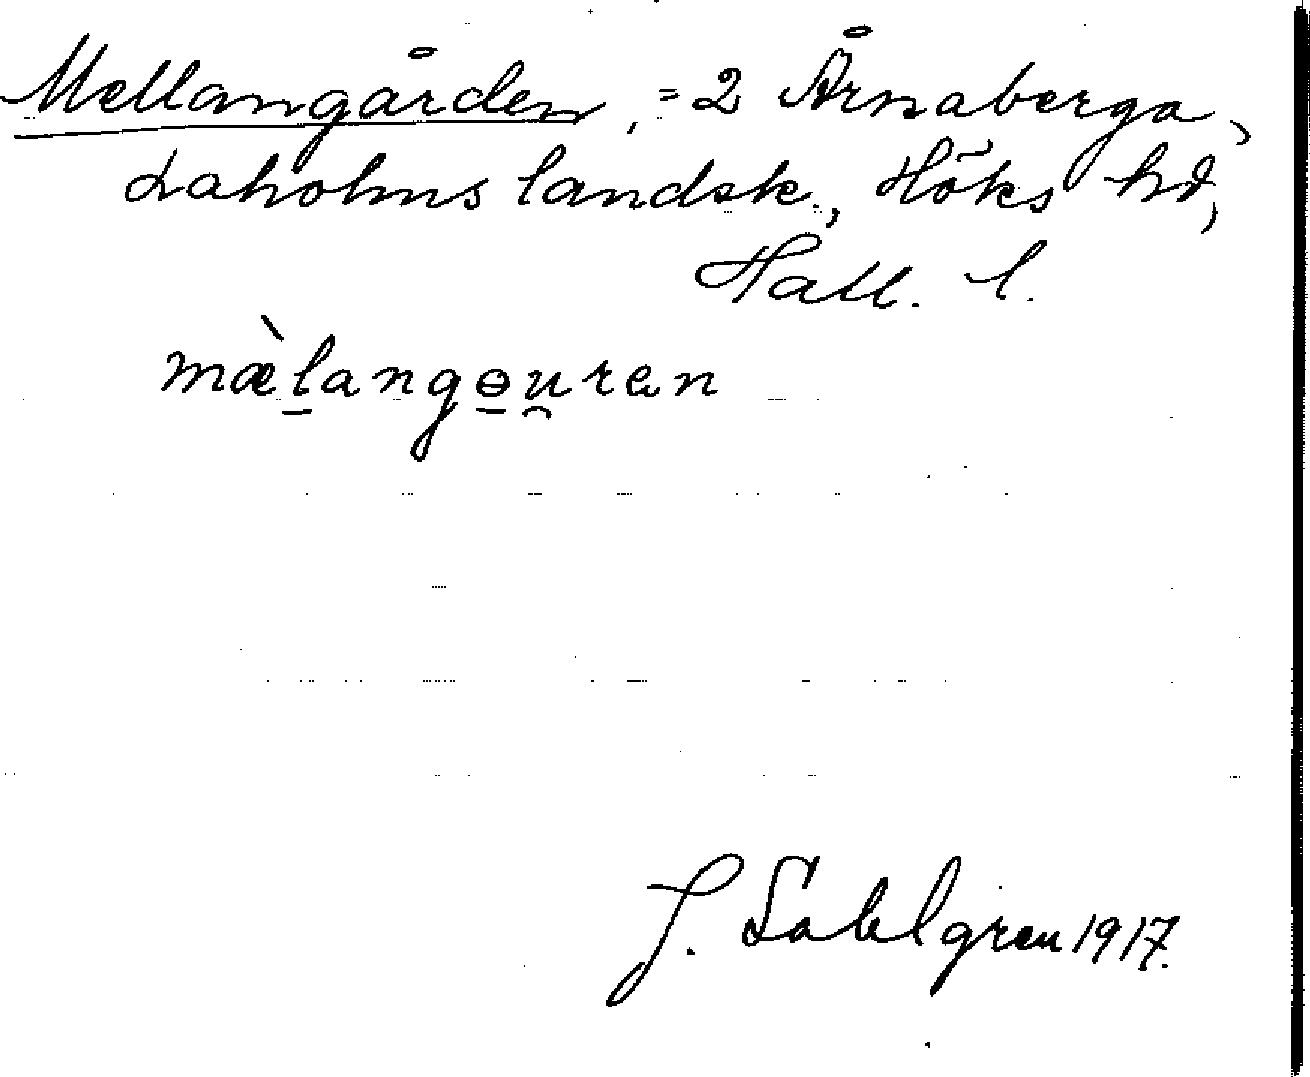 Mellangården, = 2 Årnaberga,
Laholms landsk., Höks hd,
Hall. l.
mæ̀l̠angɵ̠u̯ren
J. Sahlgren 1917.